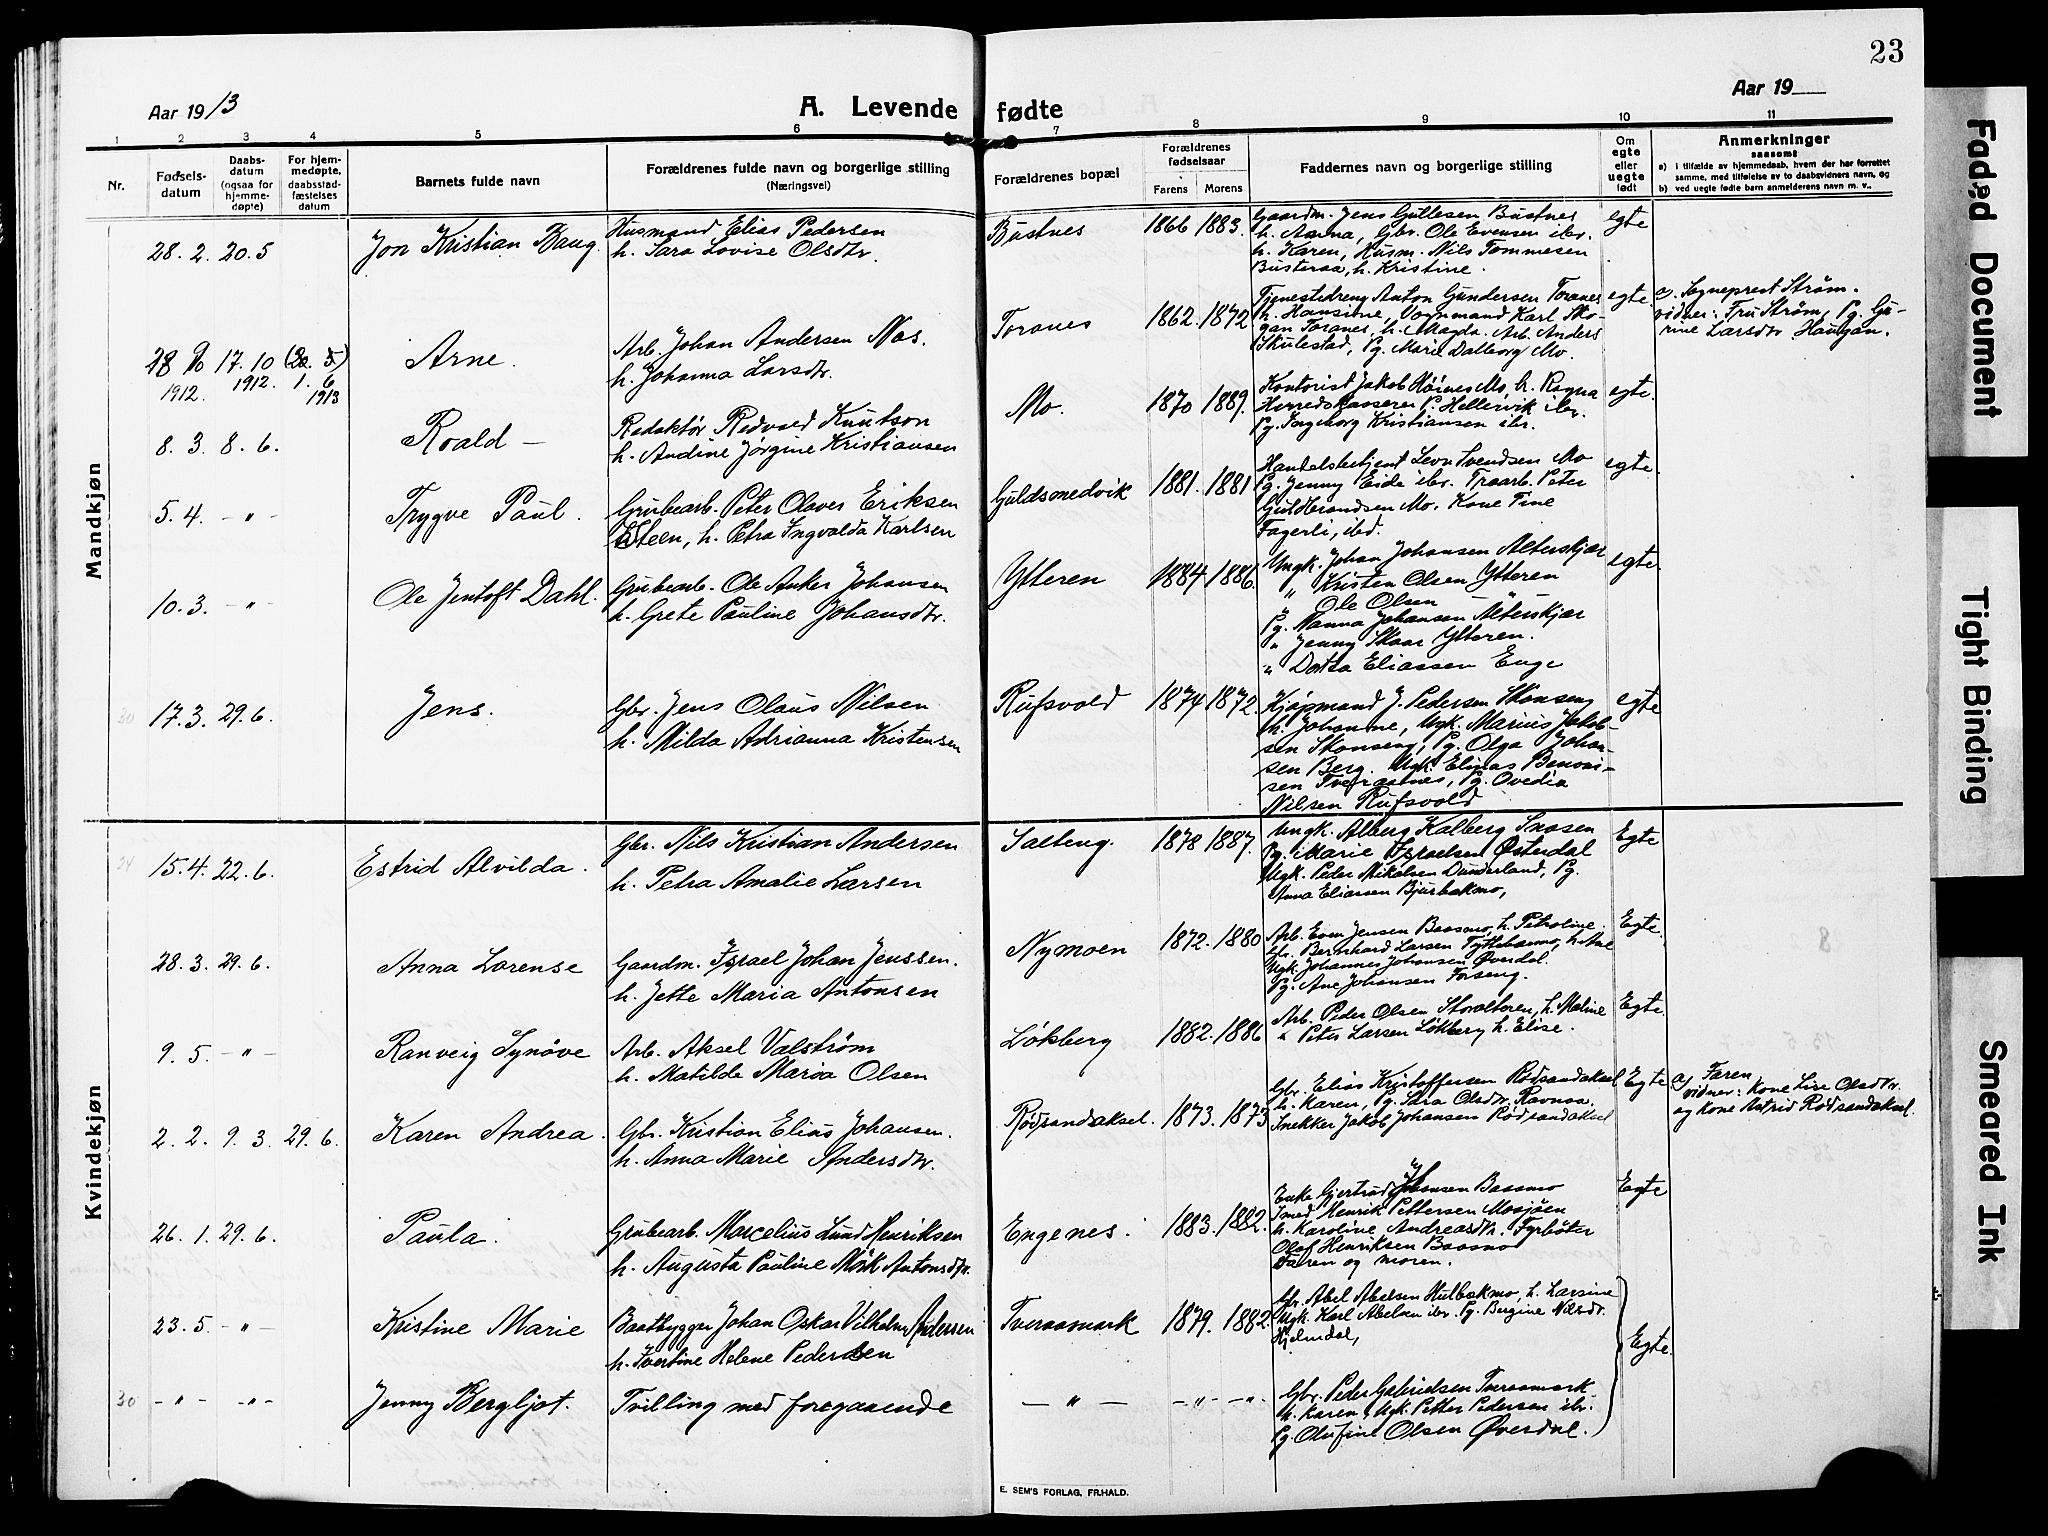 23
Aar 1913
A. Levende fødte
Aar 19
1 2 3 4 5 6 7 8 9 10 11
Nr.
Fødsels-
datum
Daabs-
datum
(ogsaa for
hjemme-
døpte)
For hjem-
medøpte,
daabsstad-
fæstelses
datum
Barnets fulde navn
Forældrenes fulde navn og borgerlige stilling
(Næringsvei)
Forældrenes bopæl
Forældrenes
fødselsaar
Farens Morens
Faddernes navn og borgerlige stilling
Om
egte
eller
uegte
født
Anmerkninger
saasom:
a) i tilfælde av hjemmedaab, hvem der har forrettet
samme, med tilføielse av to daabsvidners navn, og
b) ved uegte fødte barn anmelderens navn m. v..
Mandkjøn
28. 2. 20. 5
Jon Kristian Baug.
Husmand Elias Pedersen
h. Sara Lovise Olsdtr.
Bustnes
1866 1883.
Gaardm. Jens Gullesen Bustnes
h. Anna, Gbr. Ole Evensen ibr.
h. Karen, Husm. Nils Tommesen
Busteraa, h. Kristine.
egte
28 9 17. 10 (20. 5)
1912. 1912. 1. 6
1913
Arne.
Arb. Johan Andersen Nos.
h. Johanna Larsdtr.
Toranes
1862. 1872
Tjenestedreng Anton Gundersen Toranes
h. Hansine, Vognmand Karl Sko-
gan Toranes, h. Magda. Arb. Anders
Skulestad, Pg. Marie Dalborg Mo.
egte
a. Sogneprest Strøm.
vidner: Fru Strøm, Pg. Gu-
rine Larsdtr Haugan.
8. 3. 8. 6.
Roald –
Redaktør Redvald Knutson
h. Andine Jørgine Kristiansen
Mo.
1870 1889.
Kontorist Jakob Høines Mo, h. Ragna
Herredskasserer P. Hellesvik ibr.
Pg. Ingeborg Kristiansen ibr.
egte.
5. 4. – " –
Trygve Paul.
Grubearb. Peter Olaves Eriksen
Steen, h. Petra Ingvalda Karlsen
Guldsmedvik
1881. 1881
Handelsbetjent Leon Svendsen Mo
Pg. Jenny Eide ibr. Traarb. Peter
Gulbrandsen Mo. Kone Tine
Fagerli, ibd.
egte.
10. 3. – " –
Ole Jentoft Dahl.
Grubearb. Ole Anker Johansen
h. Grete Pauline Johansdtr.
Ytteren
1884 1886.
Ungk. Johan Johansen Alterskjær
" Kristen Olsen Ytteren
Ole Olsen –
Pg. Nanna Johansen Alterskjær
" Jenny Skaar Ytteren.
" Dortea Eliassen Enge
egte.
30
17. 3. 29. 6.
Jens.
Gbr. Jens Olaus Nilsen
h. Milda Adrianna Kristensen
Rufsvold
1874 1872.
Kjøpmand J. Pedersen Skonseng
h. Johanne, Ungk. Marius Jakob-
sen Skonseng, Pg. Olga Johan-
sen Berg. Ungk. Elinas Benoni-
sen Tveraatnes, Pg. Ovedia
Nilsen Rufsvold
egte
Kvindekjøn
24
15. 4. 22. 6.
Estrid Alvilda.
Gbr. Nils Kristian Andersen
h. Petra Amalie Larsen
Salteng.
1878 1887.
Ungk. Alberg Kalberg Snasen
Pg. Marie Israelsen Østerdal
Ungk. Peder Mikalsen Dunderland, Pg.
Anna Eliassen Bjurbekmo,
Egte
28. 3. 29. 6.
Anna Lorense
Gaardm. Israel Johan Jenssen.
h. Jette Maria Antonsen
Nymoen
1872. 1880
Arb. Even Jensen Baasmo, h. Petroline.
Gbr. Bernhard Larsen Tyttebærmo, h. Ane
Ungk. Johannes Johansen Øverdal.
Pg. Ane Johansen Forseng.
Egte.
9. 5. – " –
Ranveig Synøve
Arb. Aksel Valstrøm
h. Matilde Maria Olsen
Løkberg
1882. 1886
Arb. Peder Olsen Storalteren, h. Maline
" Peter Larsen Løkberg h. Elise.
Egte.
2. 2. 9. 3. 29. 6.
Karen Andrea.
Gbr. Kristian Elius Johansen.
h. Anna Marie Andersdtr.
Rødsandaksel.
1873. 1873
Gbr. Elias Kristoffersen Rødsandaksel
h. Karen, Pg. Sara Olsdtr. Ravnaa.
Snekker Jakob Johansen Rødsandaksel
Egte
a) Faren
vidner: Kone Lise Olsdtr.
og Kone Astrid Rødsandaksel.
26. 1. 29. 6.
Paula.
Grubearb. Marcelius Lund Henriksen
h. Augusta Pauline Mørk Antonsdtr.
Engenes.
1883. 1882.
Enke Gjertrud Johansen Baasmo
Smed Henrik Pettersen Mosjøen
h. Karoline Andreasdtr. Fyrbøter
Olaf Henriksen Baasmo
Faren og moren.
Egte
23. 5. – " –
Kristine Marie
Baatbygger Johan Oskar Vilhelm Andersen
h. Ivertine Helene Pedersen
Tveraamark
1879. 1882.
Gbr. Abel Abelsen Hulbekmo, h. Larsine
Ungk. Karl Abelsen ibr. Pg. Bergine Nilsdr.
Hjelmdal,
Egte.
30
– " – – " –
Jenny Bergljot.
Tvilling med foregaaende
– " –
– " – – " –
Gbr. Peder Gabrielsen Tveraamark
h. Karen, Ungk. Petter Pedersen ibr.
Pg. Olufine Olsen Øverdal.
E. SEM'S FORLAG, FR.HALD.
Faded Document
Tight Binding
Smeared Ink